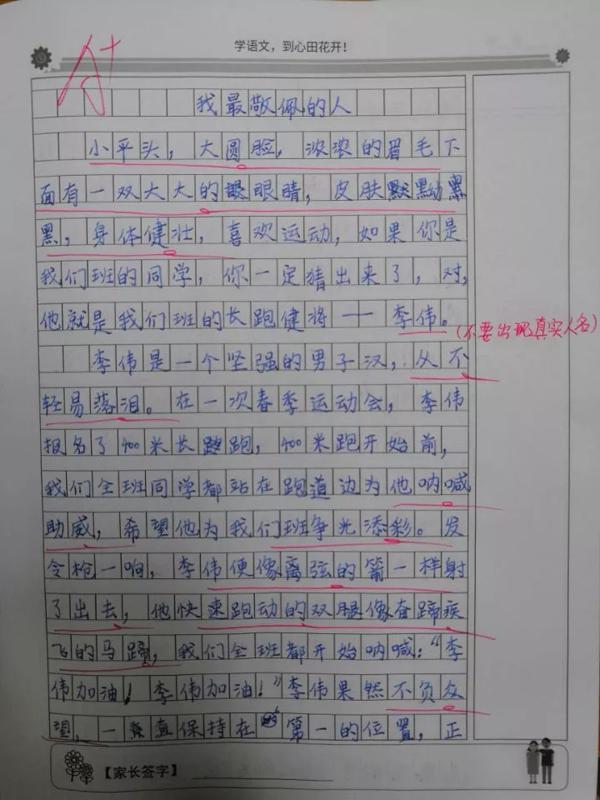 学语文，到心田花开！
A+
我最敬佩的人
小平头，大圆脸，浓浓的眉毛下
面有一双大大的眼睛，皮肤黝黑
黑，身体健壮，喜欢运动，如果你是
我们班的同学，你一定猜出来了，对，
他就是我们班的长跑健将——李伟。
(不要出现真实人名)
李伟是一个坚强的男子汉，从不
轻易落泪。在一次春季运动会，李伟
报名了400米长跑，400米跑开始前，
我们全班同学都站在跑道边为他呐喊
助威，希望他为我们班争光添彩。发
令枪一响，李伟便像离弦的箭一样射
了出去，他快速跑动的双腿像奋蹄疾
飞的马蹄，我们全班都开始呐喊："李
伟加油！李伟加油！"李伟果然不负众
望，一直保持在第一的位置，正
【家长签字】